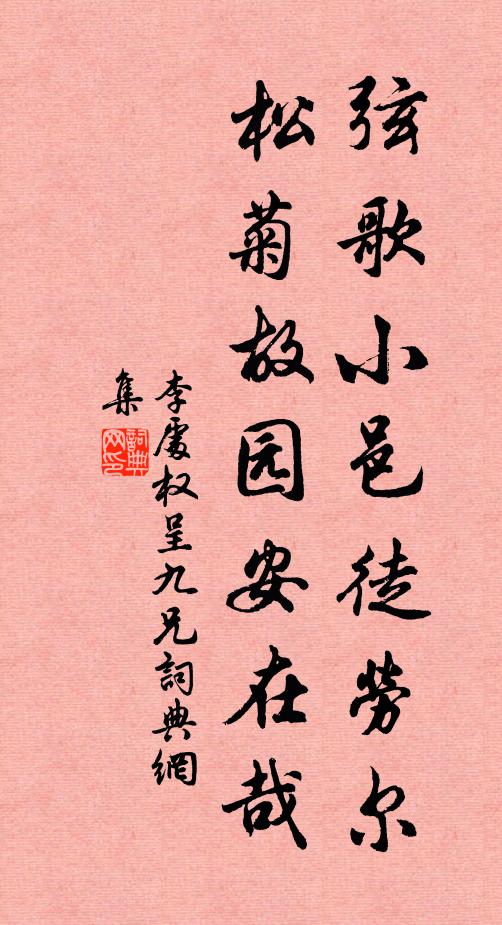 弦歌小邑徒劳尔
松菊故园安在哉
李處权呈九兄詞典網
集
詞典网印